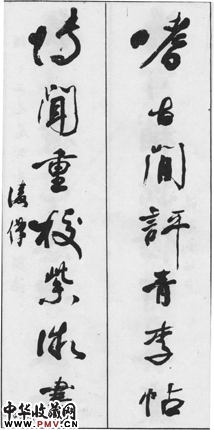 嗜古閒評青李帖
博聞重校紫微書
中华收藏网
www.PMV.cn